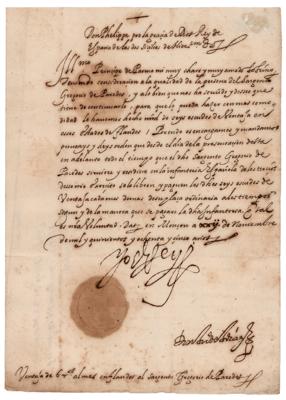 Don Phelippe por la gracia de Dios Rey de
España de las dos Sicilias de Hierusalem
Illmo Principe de Parma mi muy charo y muy amado sobrino
Haviendo consideracion a la qualidad de la persona del Sargento
Gregorio de Paredes, y a lo bien que nos ha servido y desseo que
tiene de continuarlo, para que lo pueda hazer con mas como
didad le havemos hecho mrd de seys escudos de Ventaja en
essos estados de flandes
proveays y deys orden que desde el dia de la presentacion desta
en adelante todo el tiempo que el dho Sargento Gregorio de
Paredes sirviere y residiere en la infanteria Española
de mi servicio se le libren y paguen los dhos seys escudos de
Ventaja cada mes demas de su plaça ordinaria a los tiempos
segun y de la manera que se pagare la dha Infanteria
es mi Voluntad. Dat en Monçon a de Noviembre
de mil y quinientos y ochenta y cinco años
Yo el Rey
Ventaja de 6 al mes en flandes al sargento Gregorio de Paredes